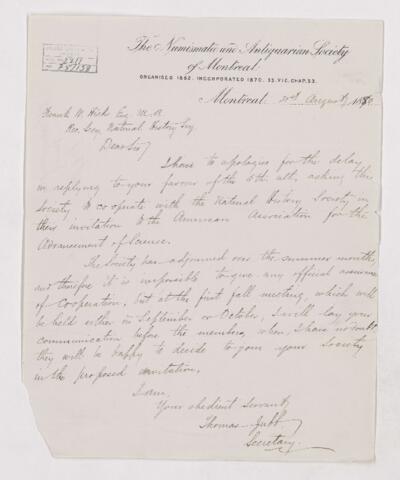 The Numismatic and Antiquarian Society
of Montreal.
ORGANISED 1862. INCORPORATED 1870. 33. VIC. CHAP. 33.
Montreal. August 18
Frank W. Hicks Esq. M.A
Rec. Secy Natural History Socy
Dear Sir
I have to apologise for the delay
in replying to your favour of the 5th ult, asking this
Society to co-operate with the Natural History Society in
their invitation to the American Association for the
Advancement of Science.
The Society has adjourned over the summer months,
and therefore it is impossible to give any official assurance
of Cooperation, but at the first fall meeting, which will
be held either in September or October, I will lay your
communication before the members, when, I have no doubt
they will be happy to decide to join your Society
in the proposed invitation.
I am,
Your obedient servant
Thomas Jubb
Secretary.